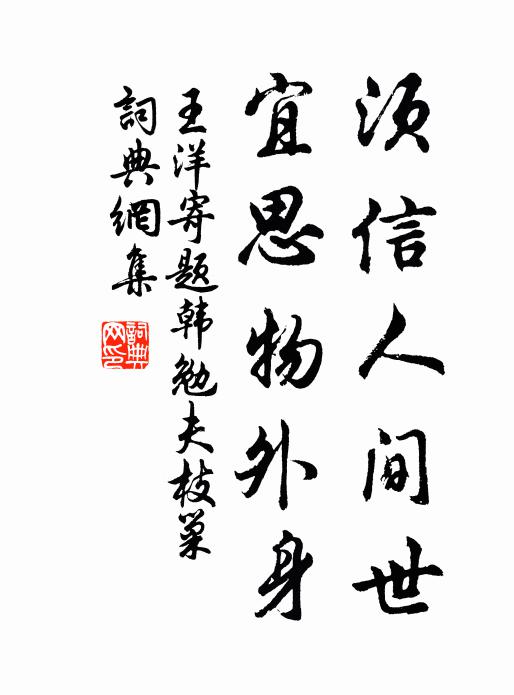 須信人间世
宜思物外身
王洋寄题韩勉夫枝巢
詞典網集
詞典網印